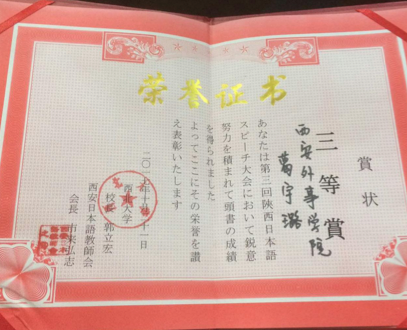 荣誉证书
賞状
三等賞
西安外事学院
葛宇璐
あなたは第三回陝西日本語
スピーチ大会において鋭意
努力を積まれて頭書の成績
を得られました
よってここにその栄誉を讃
え表彰いたします
二〇 十一日
大学
校長 郭立宏
西安日本語教師会
会長 市来弘志